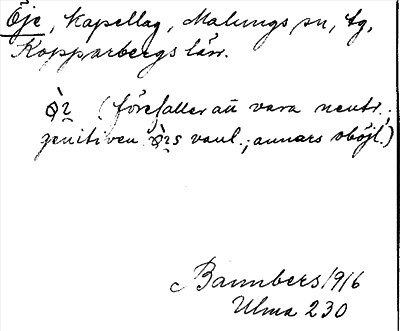 Öje, Kapellag, Malungs sn, tg,
Kopparbergs län.
(förefaller att vara neutr.;
genitiven vanl.; annars oböjl.)
Bannbers 1916
Ulma 230